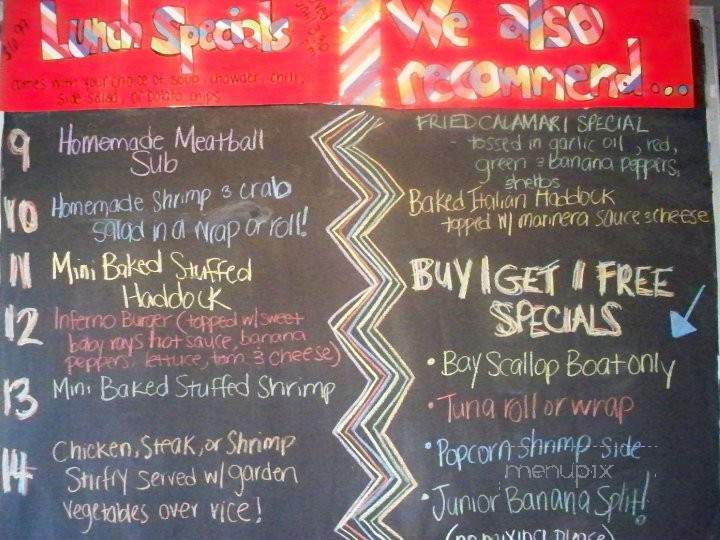 Lunch Specials
comes with your choice of soup, chowder, chili,
side salad, or potato chips
9 Homemade Meatball
Sub
10 Homemade Shrimp & crab
salad in a wrap or roll!
11 Mini Baked Stuffed
Haddock
12 Inferno Burger (topped w/ sweet
baby rays hot sauce, banana
peppers lettuce, tom & cheese)
13 Mini Baked Stuffed Shrimp
14 Chicken, Steak, or Shrimp
Stirfry served w/ garden
vegetables over rice!
We also
recommend...
FRIED CALAMARI SPECIAL
- tossed in garlic oil, red,
green & banana peppers,
& herbs
Baked Italian Haddock
topped w/ marinera sauce & cheese
BUY 1 GET 1 FREE
SPECIALS
• Bay Scallop Boat only
• Tuna roll or wrap
• Popcorn shrimp side
menupix
• Junior Banana Split!
(no mixing please)